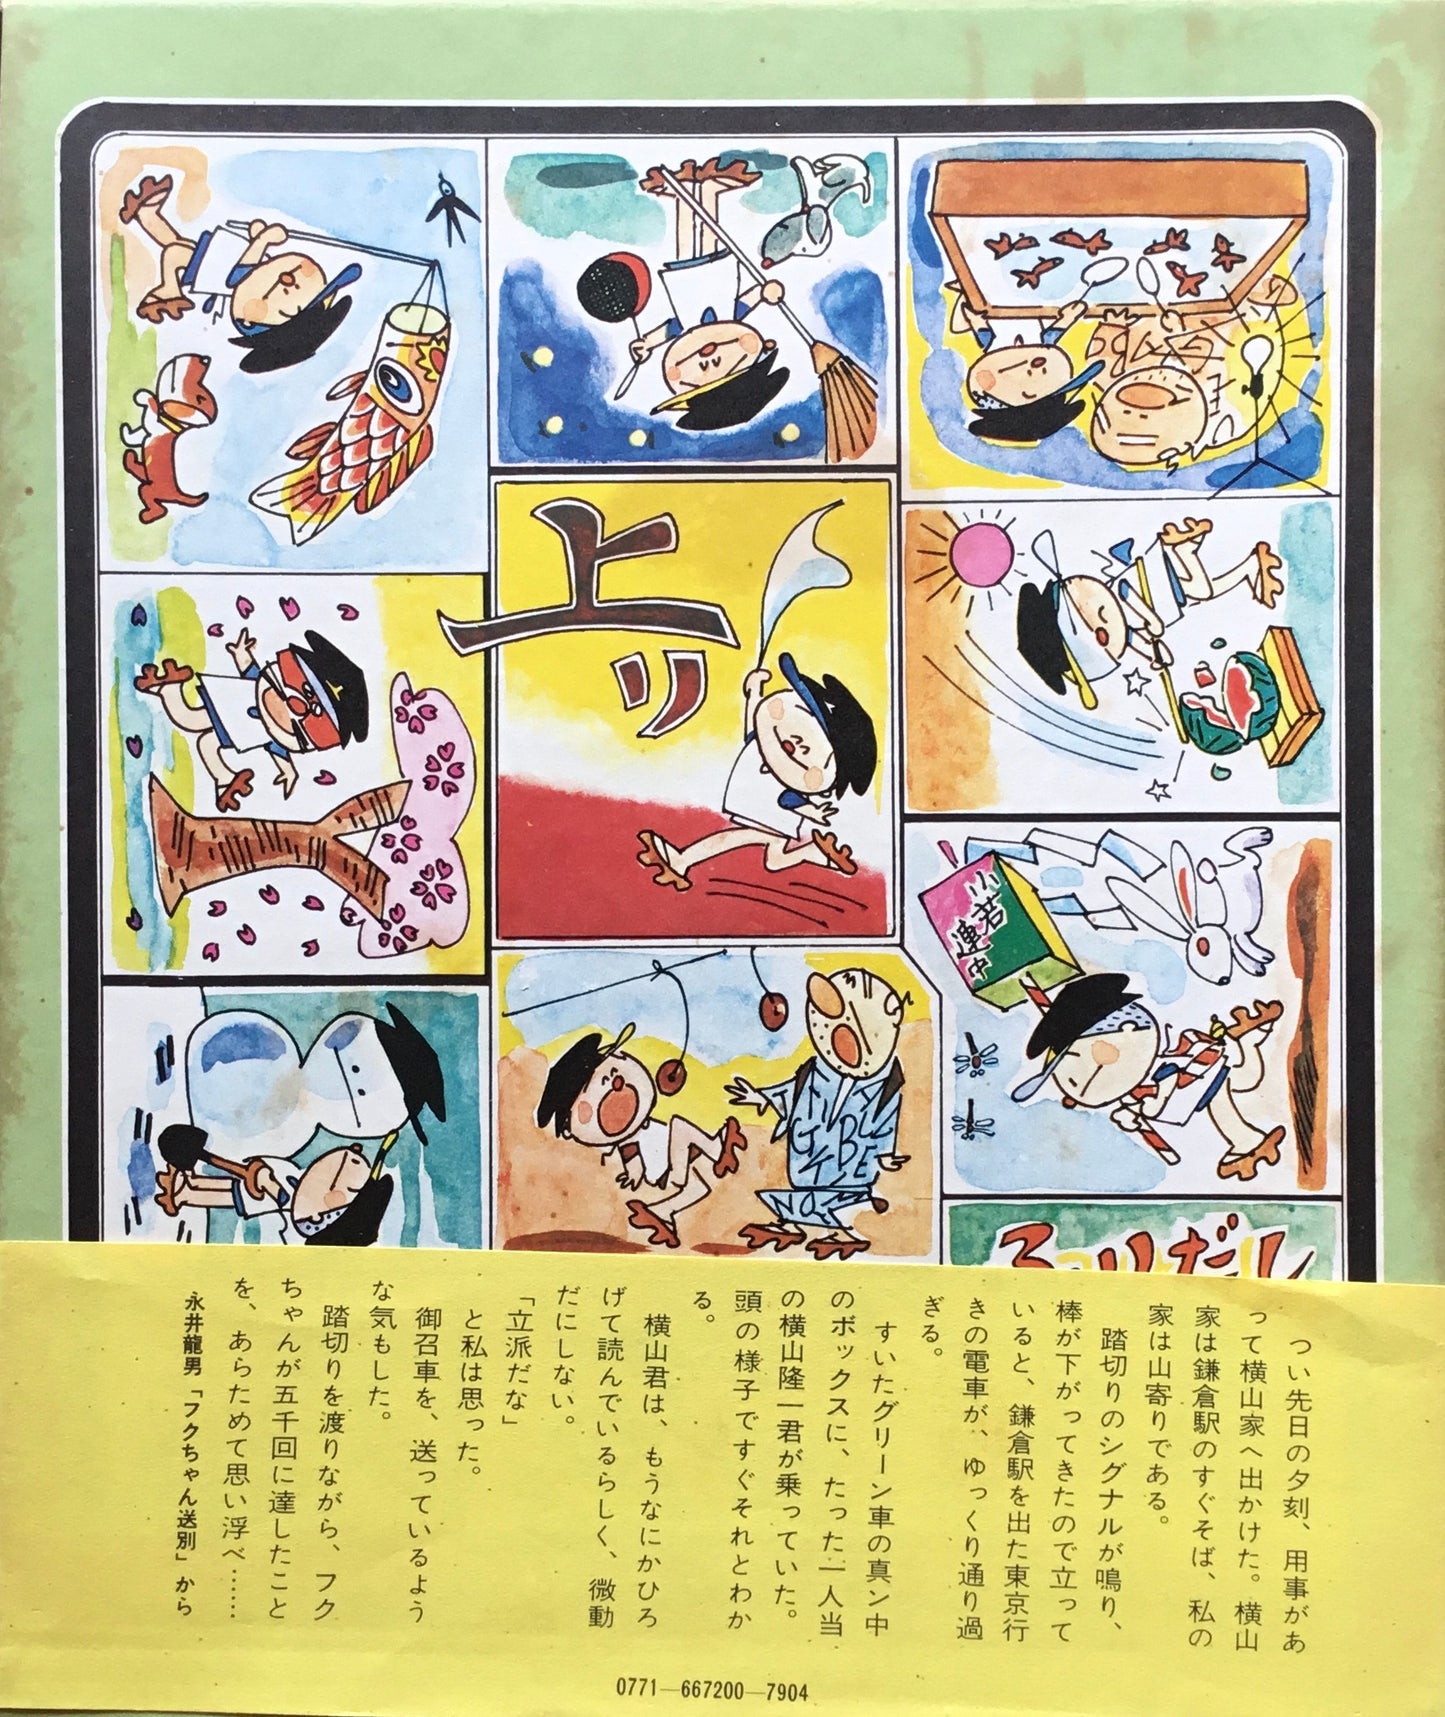 上リ
小若連中
ふりだし
つい先日の夕刻、用事があ
って横山家へ出かけた。横山
家は鎌倉駅のすぐそば、私の
家は山寄りである。
踏切りのシグナルが鳴り、
棒が下がってきたので立って
いると、鎌倉駅を出た東京行
きの電車が、ゆっくり通り過
ぎる。
すいたグリーン車の真ン中
のボックスに、たった一人当
の横山隆一君が乗っていた。
頭の様子ですぐそれとわか
る。
横山君は、もうなにかひろ
げて読んでいるらしく、微動
だにしない。
「立派だな」
と私は思った。
御召車を、送っているよう
な気もした。
踏切りを渡りながら、フク
ちゃんが五千回に達したこと
を、あらためて思い浮べ……
永井龍男「フクちゃん送別」から
0771—667200—7904